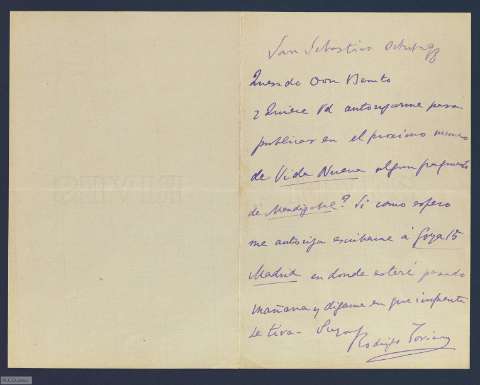 San Sebastian Octubre 98
Querido Don Benito
¿Quiere Vd autorizarme para
publicar en el proximo numero
de Vida Nueva algun fragmento
de Mendizabal? Si como espero
me autoriza escribame á Goya 15
Madrid en donde estaré pasado
mañana y digame en que imprenta
se tira. Suyo
Rodrigo Soriano